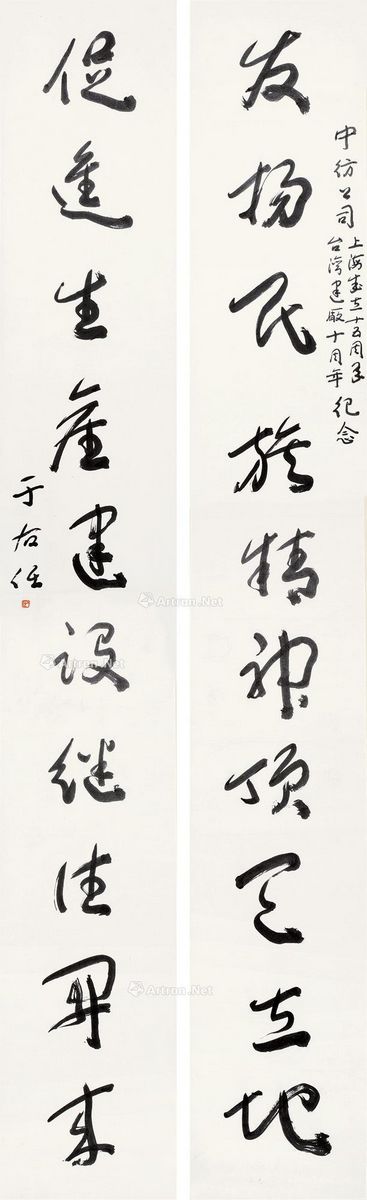 发扬民族精神顶天立地
中纺公司上海成立十五周年台湾建厰十周年纪念
促進生産建设继往开来
于右任
Artron.Net
Artron.Net
Artron.Net